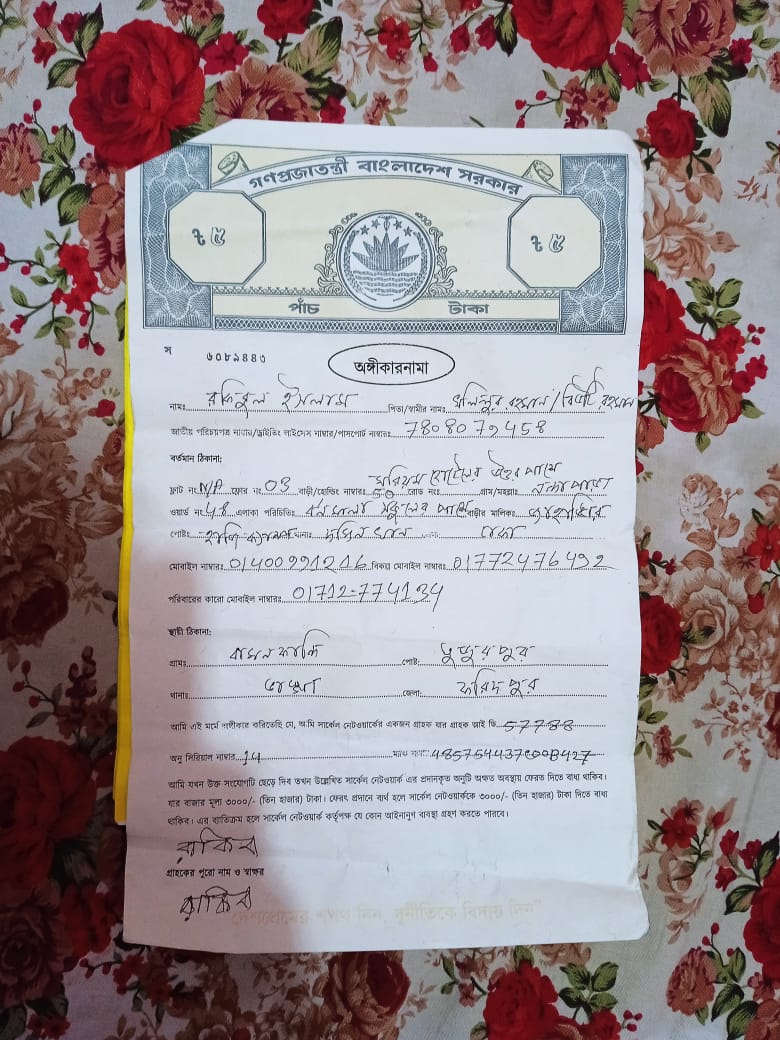 গণপ্রজাতন্ত্রী বাংলাদেশ সরকার
৳ ৫ ৳ ৫
পাঁচ টাকা
স ৬০৮৯৪৪৩
অঙ্গীকারনামা
নামঃ রকিবুল ইসলাম পিতা/স্বামীর নামঃ রহমান/ রহমান
জাতীয় পরিচয়পত্র নাম্বার/ড্রাইভিং লাইসেন্স নাম্বার/পাসপোর্ট নাম্বারঃ 7808079458
বর্তমান ঠিকানা:
মরিয়ম হোটেলের উত্তর পাশে
ফ্লাট নং N/A ফ্লোর নং 03 বাড়ী/হোল্ডিং নাম্বারঃ 50 রোড নংঃ গ্রাম/মহল্লাঃ
ওয়ার্ড নং 48 এলাকা পরিচিতিঃ বর্নমালা স্কুলের পাশে বাড়ীর মালিকঃ জাহাঙ্গির
পোষ্টঃ হাজি ক্যাম্প থানাঃ দক্ষিন খান ঢাকা
মোবাইল নাম্বারঃ 01400991216 বিকল্প মোবাইল নাম্বারঃ 01772476492
পরিবারের কারো মোবাইল নাম্বারঃ 01712-774134
স্থায়ী ঠিকানা:
গ্রামঃ পোষ্ট:
থানাঃ ভাঙ্গা জেলা: ফরিদপুর
আমি এই মর্মে অঙ্গীকার করিতেছি যে, আমি সার্কেল নেটওয়ার্কের একজন গ্রাহক যার গ্রাহক আই ডি 57788
অনু সিরিয়াল নাম্বার 14
আমি যখন উক্ত সংযোগটি ছেড়ে দিব তখন উল্লেখিত সার্কেল নেটওয়ার্ক এর প্রদানকৃত অনুটি অক্ষত অবস্থায় ফেরত দিতে বাধ্য থাকিব।
যার বাজার মূল্য ৩০০০/- (তিন হাজার) টাকা। ফেরৎ প্রদানে ব্যর্থ হলে সার্কেল নেটওয়ার্ককে ৩০০০/- (তিন হাজার) টাকা দিতে বাধ্য
থাকিব। এর ব্যতিক্রম হলে সার্কেল নেটওয়ার্ক কর্তৃপক্ষ যে কোন আইনানুগ ব্যবস্থা গ্রহণ করতে পারবে।
রাকিব
গ্রাহকের পুরো নাম ও স্বাক্ষর
রাকিব
দেশপ্রেমের শপথ নিন, দুর্নীতিকে বিদায় দিন